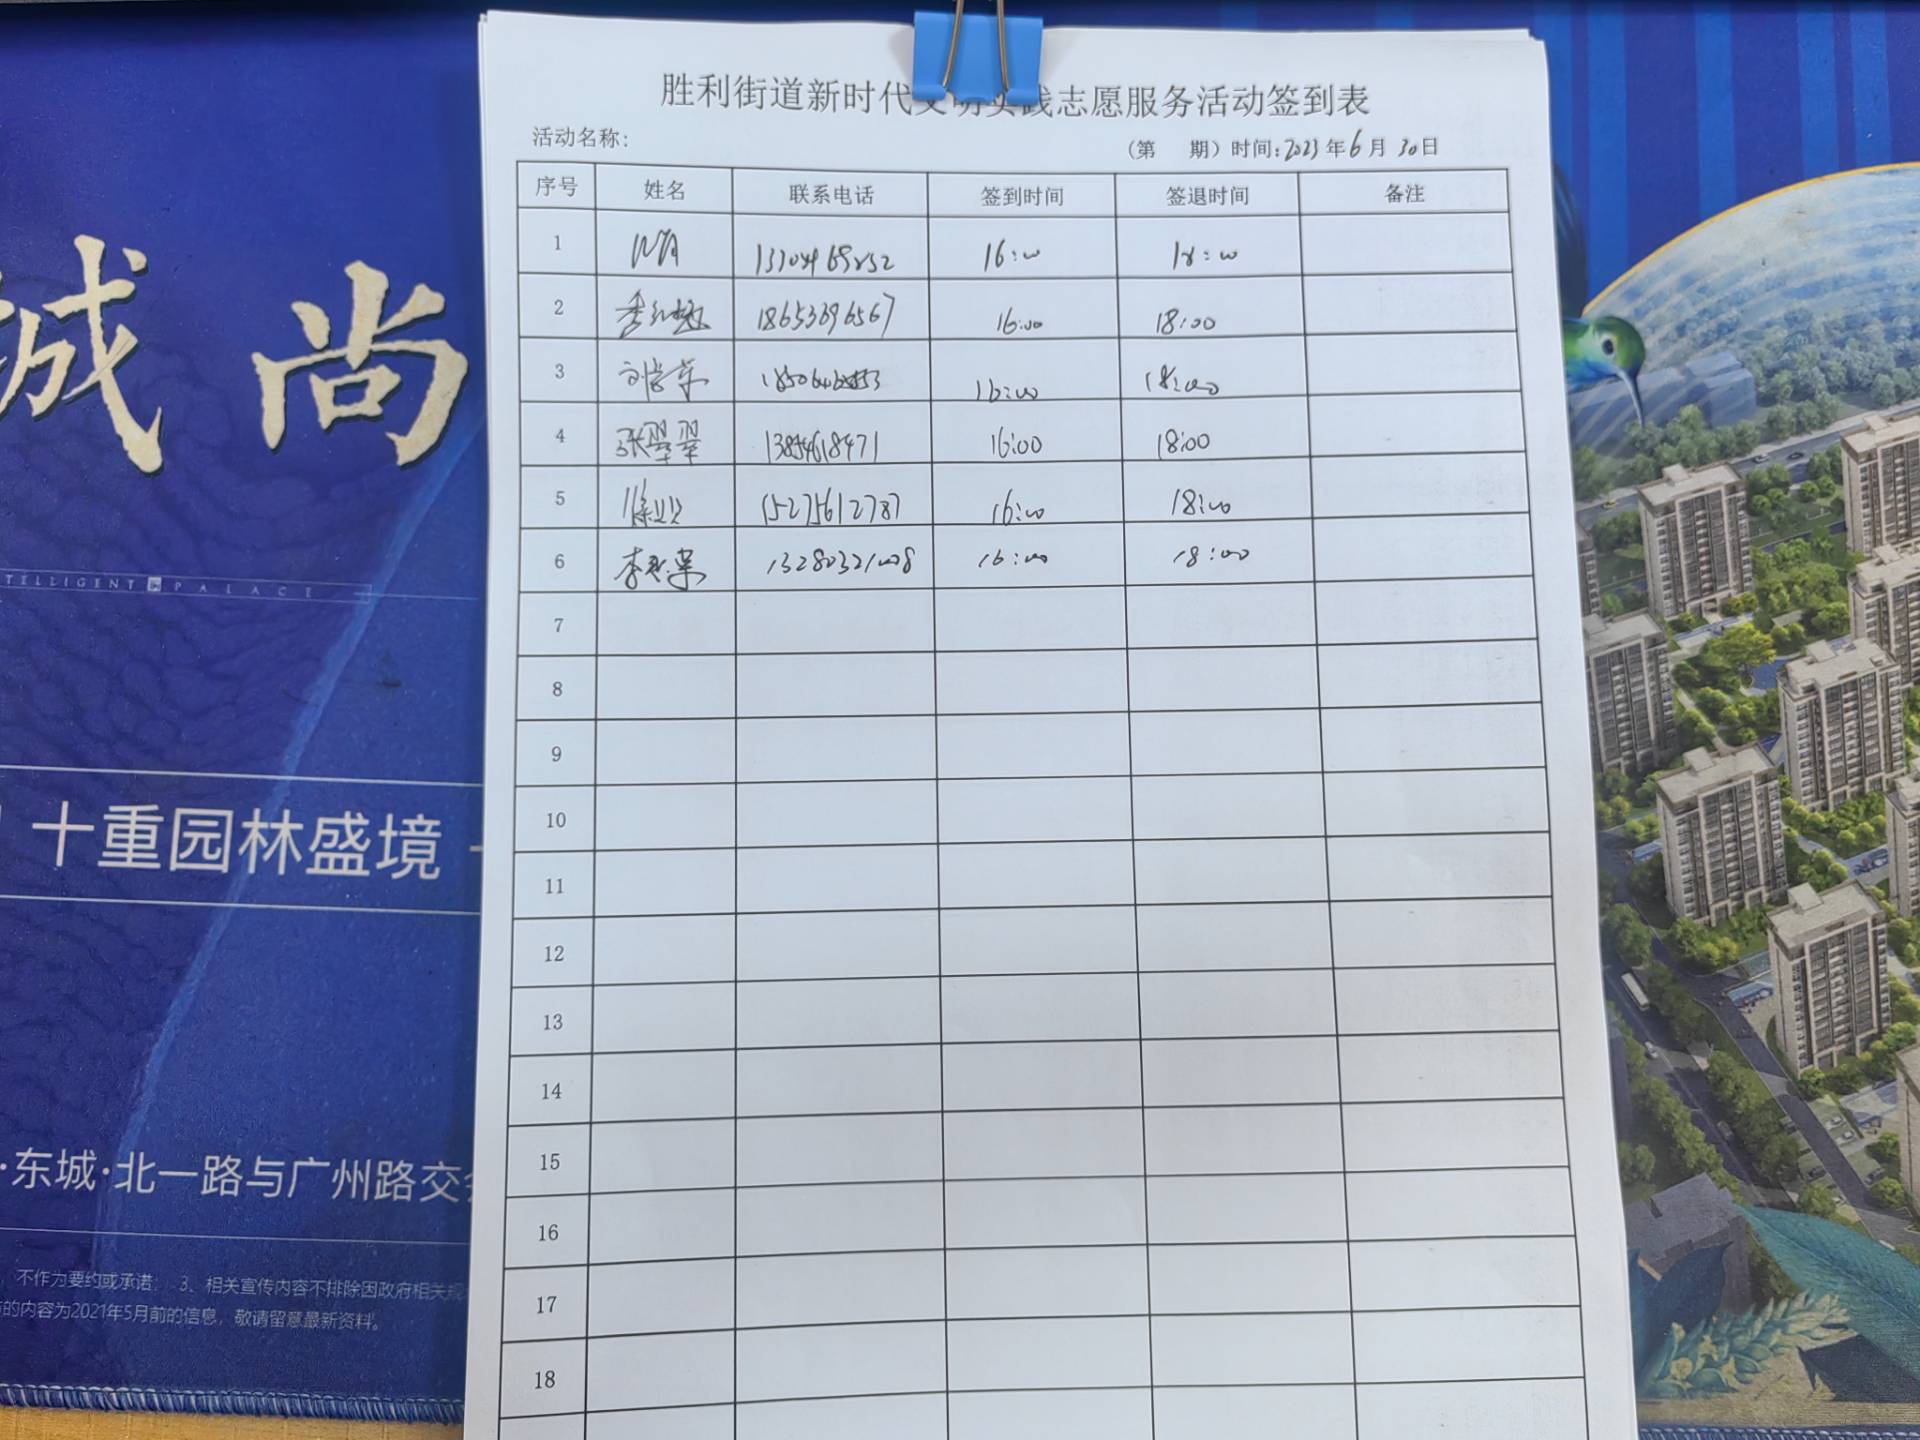 胜利街道新时代文明实践志愿服务活动签到表
活动名称：
（第 期）时间：2023年6月30日
序号 姓名 联系电话 签到时间 签退时间 备注
1 16:00 18:00
2 18653696567 16:00 18:00
3 16:00 18:00
4 张翠翠 13854618471 16:00 18:00
5 15275612787 16:00 18:00
6 13280321008 16:00 18:00
7
8
9
10
11
12
13
14
15
16
17
18
城 尚
TELLIGENT PALACE
十重园林盛境
·东城·北一路与广州路交
不作为要约或承诺； 3、相关宣传内容不排除因政府相关
的内容为2021年5月前的信息，敬请留意最新资料。